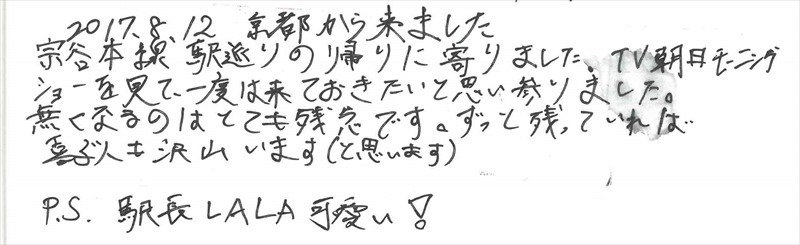 2017.8.12 京都から来ました
宗谷本線 駅巡りの帰りに寄りました。TV朝日モーニング
ショーを見て、一度は来ておきたいと思い参りました。
無くなるのはとても残念です。ずっと残っていれば
喜ぶ人も沢山います(と思います)
P.S. 駅長LALA可愛い!